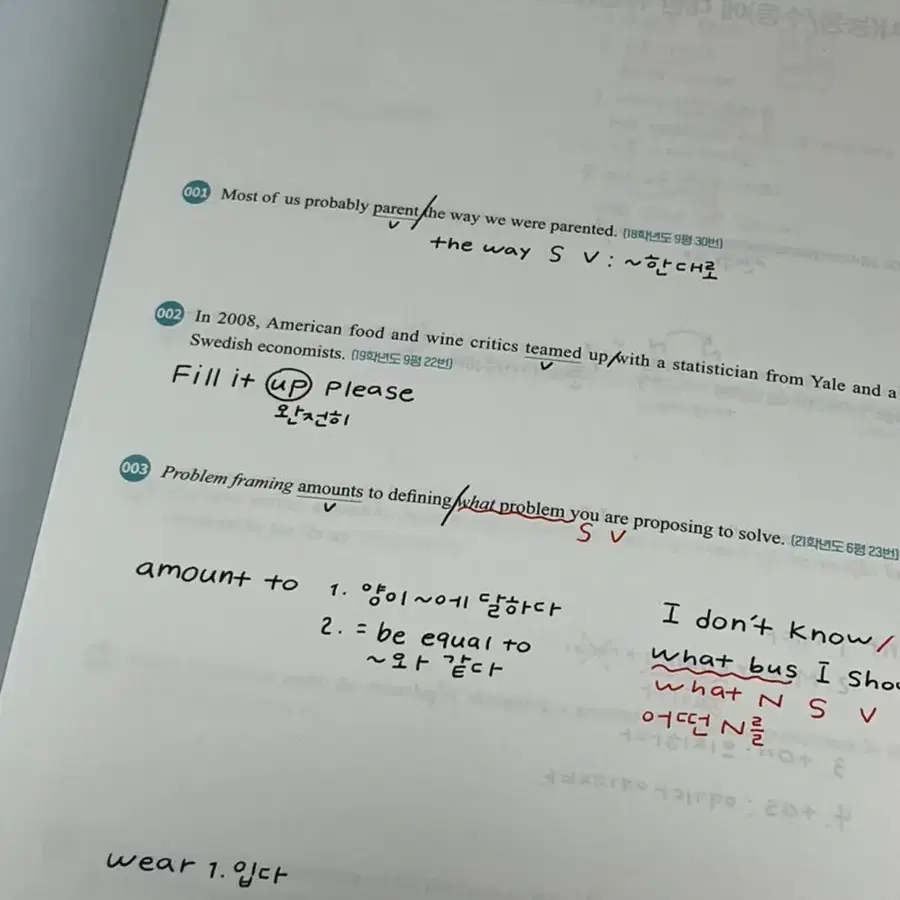 001 Most of us probably parent/the way we were parented. [18학년도 9평 30번]
V
the way S V : ~한대로
002 In 2008, American food and wine critics teamed up/with a statistician from Yale and a
V
Swedish economists. [19학년도 9평 22번]
Fill it up please
완전히
003 Problem framing amounts to defining/what problem you are proposing to solve. [21학년도 6평 23번]
V S V
amount to 1. 양이 ~에 달하다
2. = be equal to
~와 같다
I don't know/
what bus I
what N S V
어떤 N를
wear 1. 입다